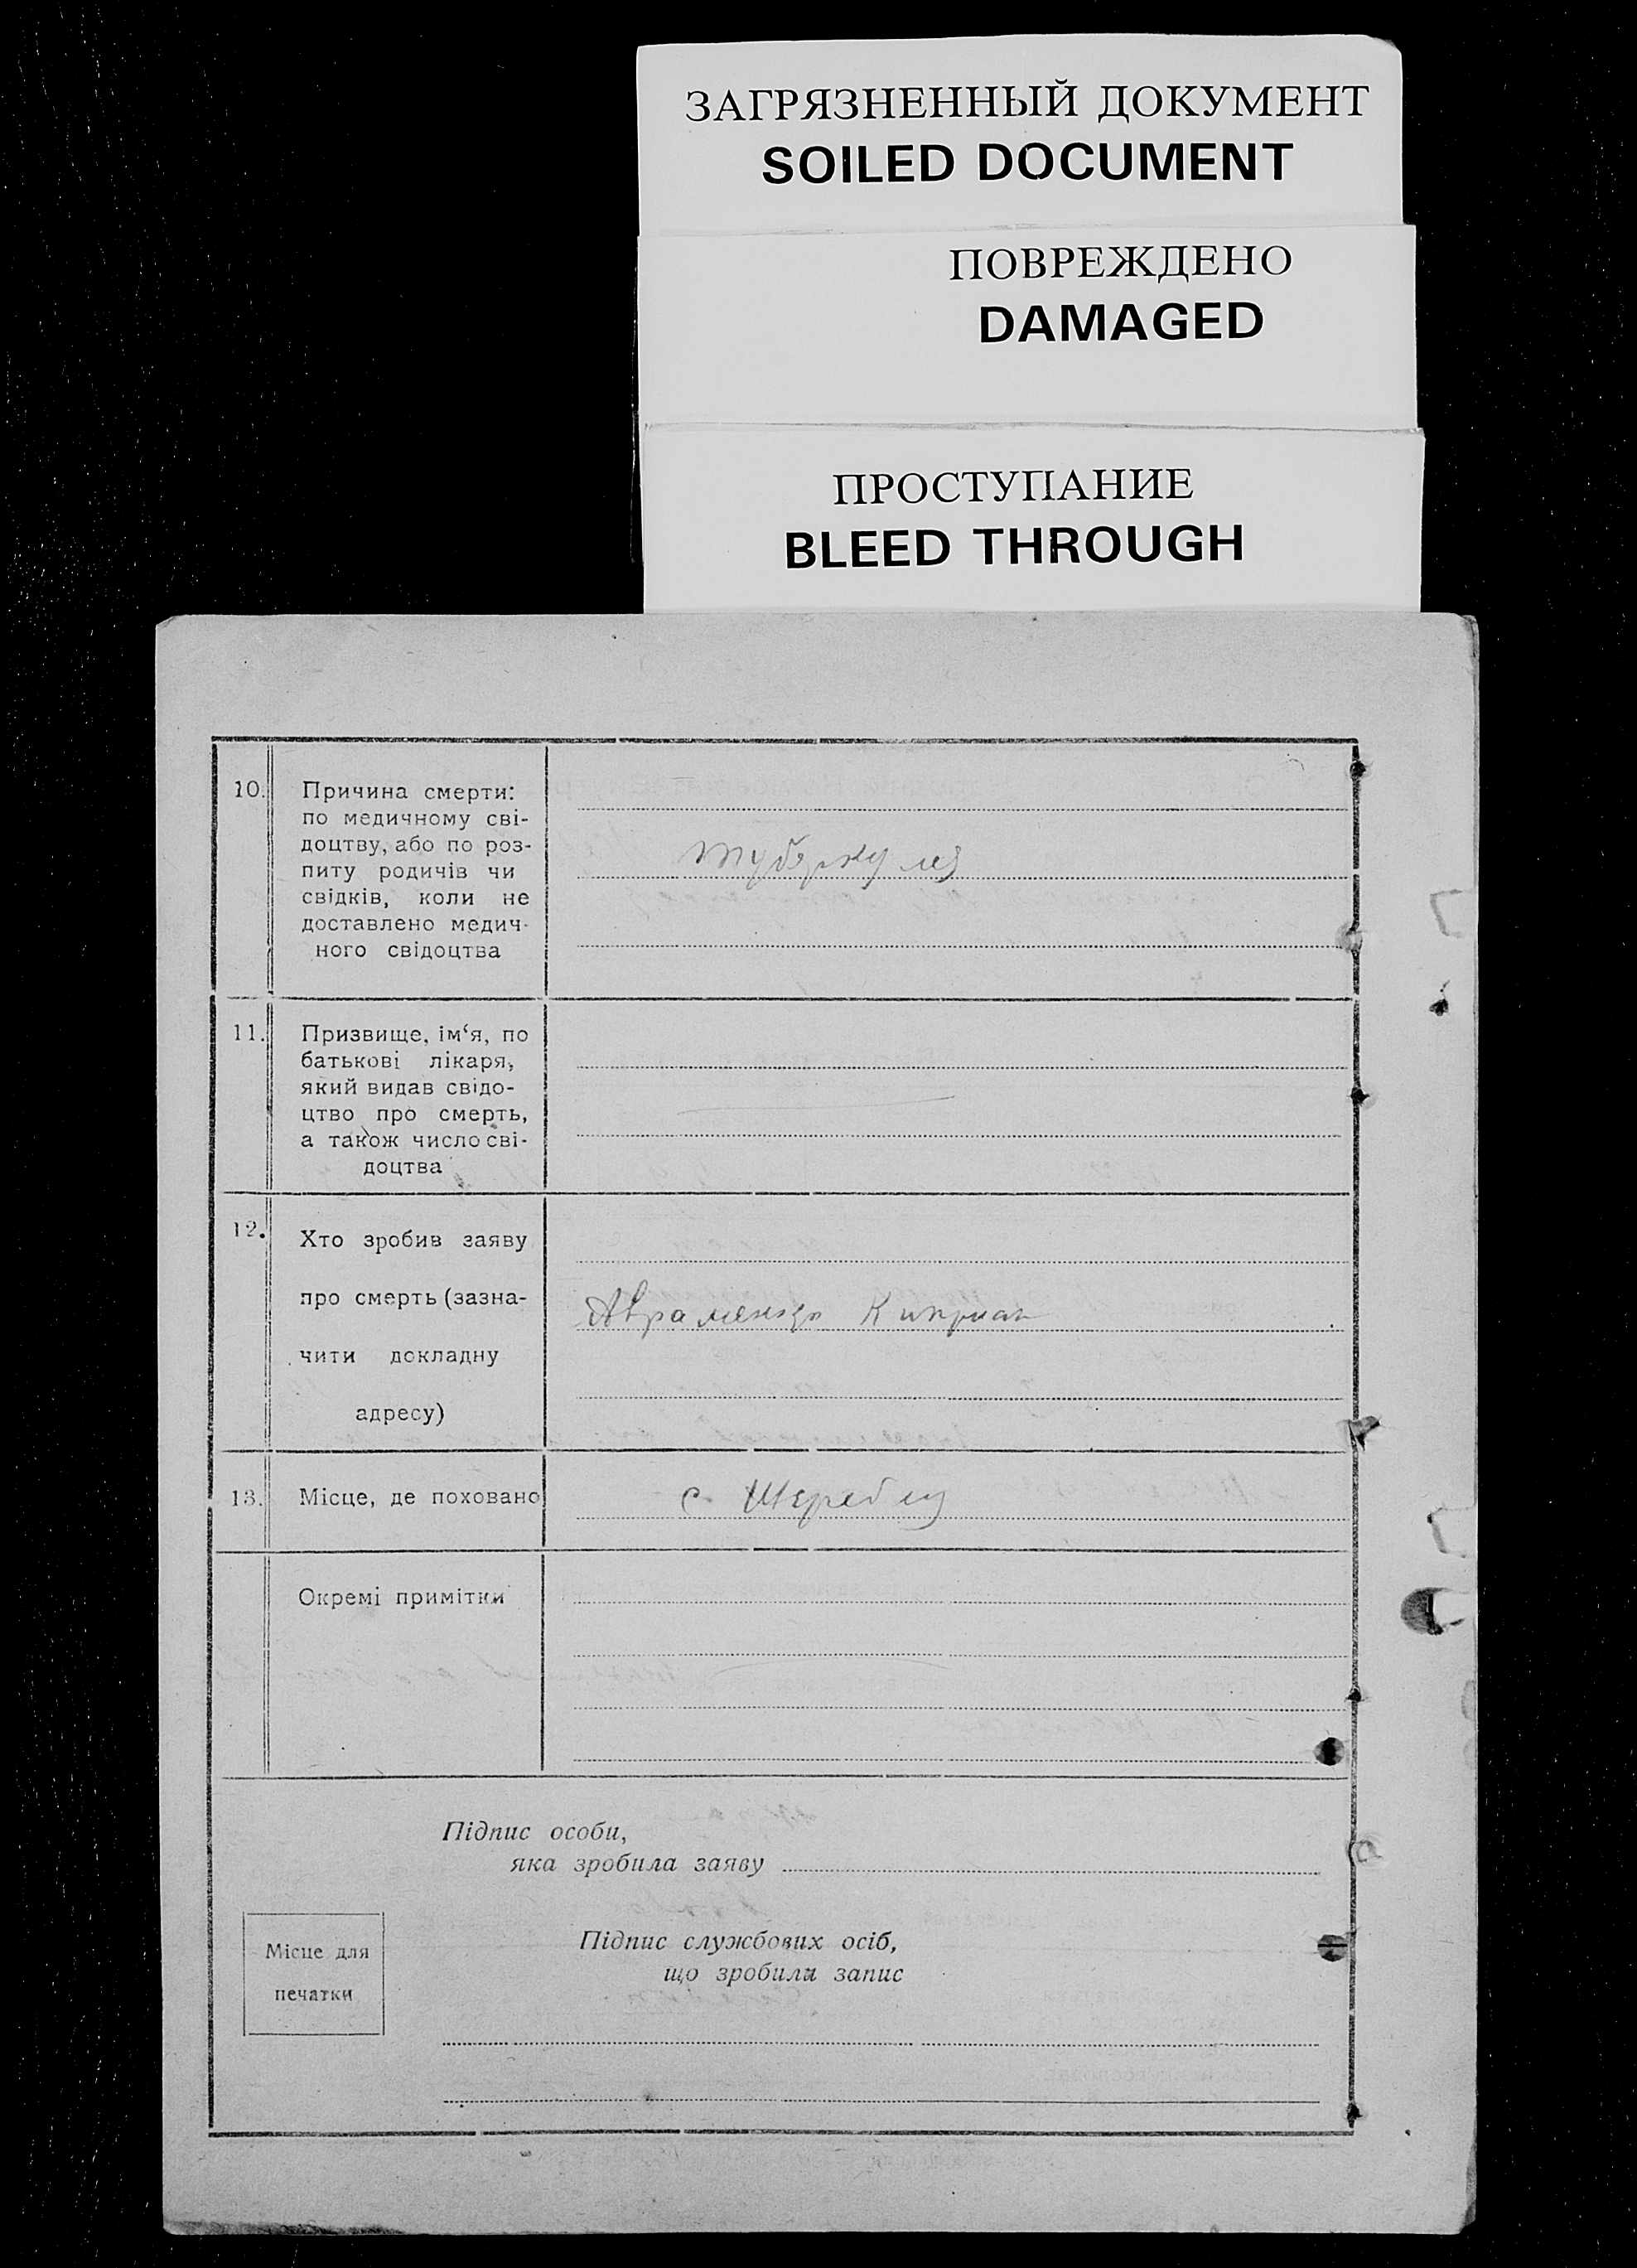 ЗАГРЯЗНЕННЫЙ ДОКУМЕНТ
SOILED DOCUMENT
ПОВРЕЖДЕНО
DAMAGED
ПРОСТУПАНИЕ
BLEED THROUGH
10. Причина смерти:
по медичному сві-
доцтву, або по роз-
питу родичів чи
свідків, коли не
доставлено медич-
ного свідоцтва
туберкулез
11. Призвище, ім‘я, по
батькові лікаря,
який видав свідо-
цтво про смерть,
а також число сві-
доцтва
12. Хто зробив заяву
про смерть (зазна-
чити докладну
адресу)
Авраменко Киприан
13. Місце, де поховано
с.
Окремі примітки
Підпис особи,
яка зробила заяву
Місце для
печатки
Підпис службових осіб,
що зробили запис